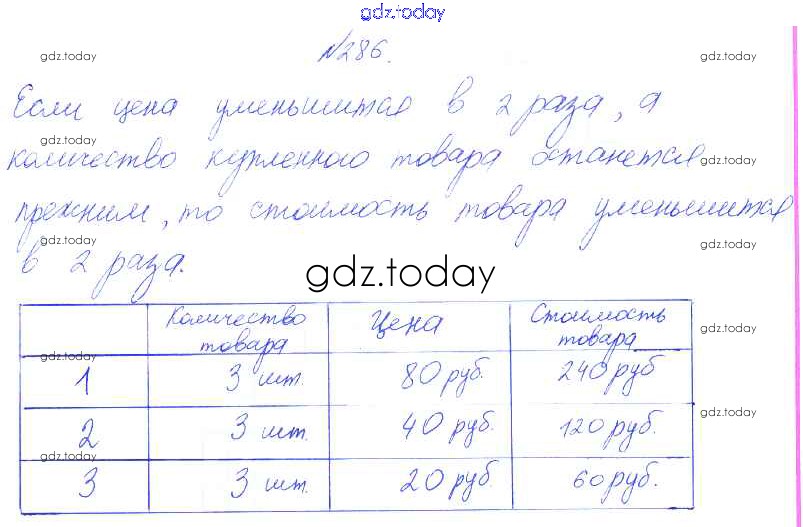 gdz.today
№286.
gdz.today gdz.today
Если цена уменьшится в 2 раза, а
gdz.today
количество купленного товара останется
gdz.today gdz.today
прежним, то стоимость товара уменьшится
gdz.today gdz.today
в 2 раза.
gdz.today
Количество товара Цена Стоимость товара
gdz.today
gdz.today
1 3 шт. 80 руб. 240 руб
gdz.today
2 3 шт. 40 руб. 120 руб.
gdz.today
3 3 шт. 20 руб. 60 руб.
gdz.today